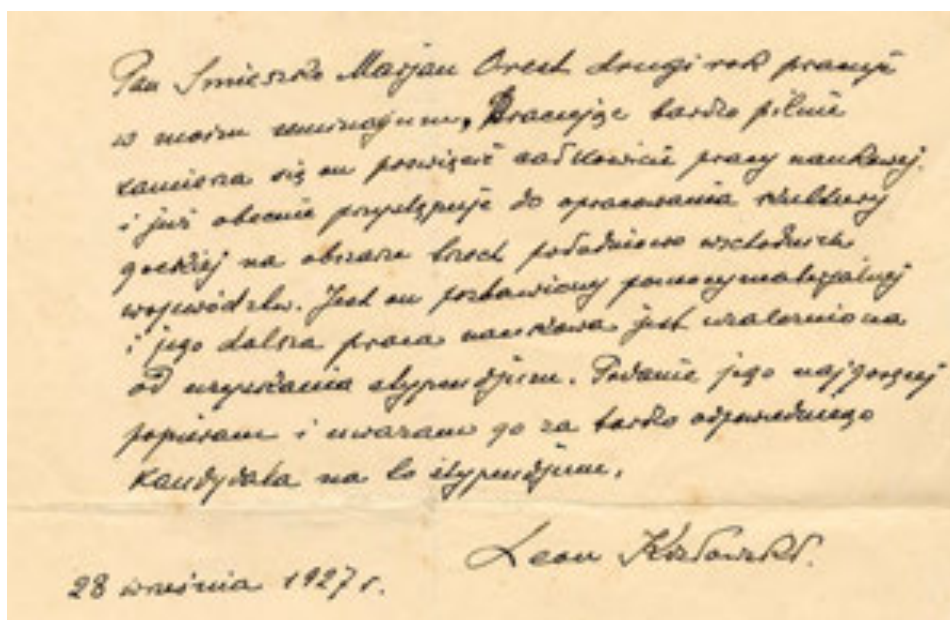 Pan Smieszko Marjan Orest drugi rok pracuje
w moim seminarjum. Pracując bardzo pilnie
zamierza się on poświęcić całkowicie pracy naukowej.
i już obecnie przystępuje do opracowania kultury
gockiej na obszarze trzech południowo wschodnich
województw. Jest on pozbawiony pomocy materjalnej
i jego dalsza praca naukowa jest uzależniona
od uzyskania stypendjum. Podanie jego najgoręcej
popieram i uważam go za bardzo odpowiedniego
kandydata na to stypendjum.
Leon Kozłowski.
28 września 1927 r.